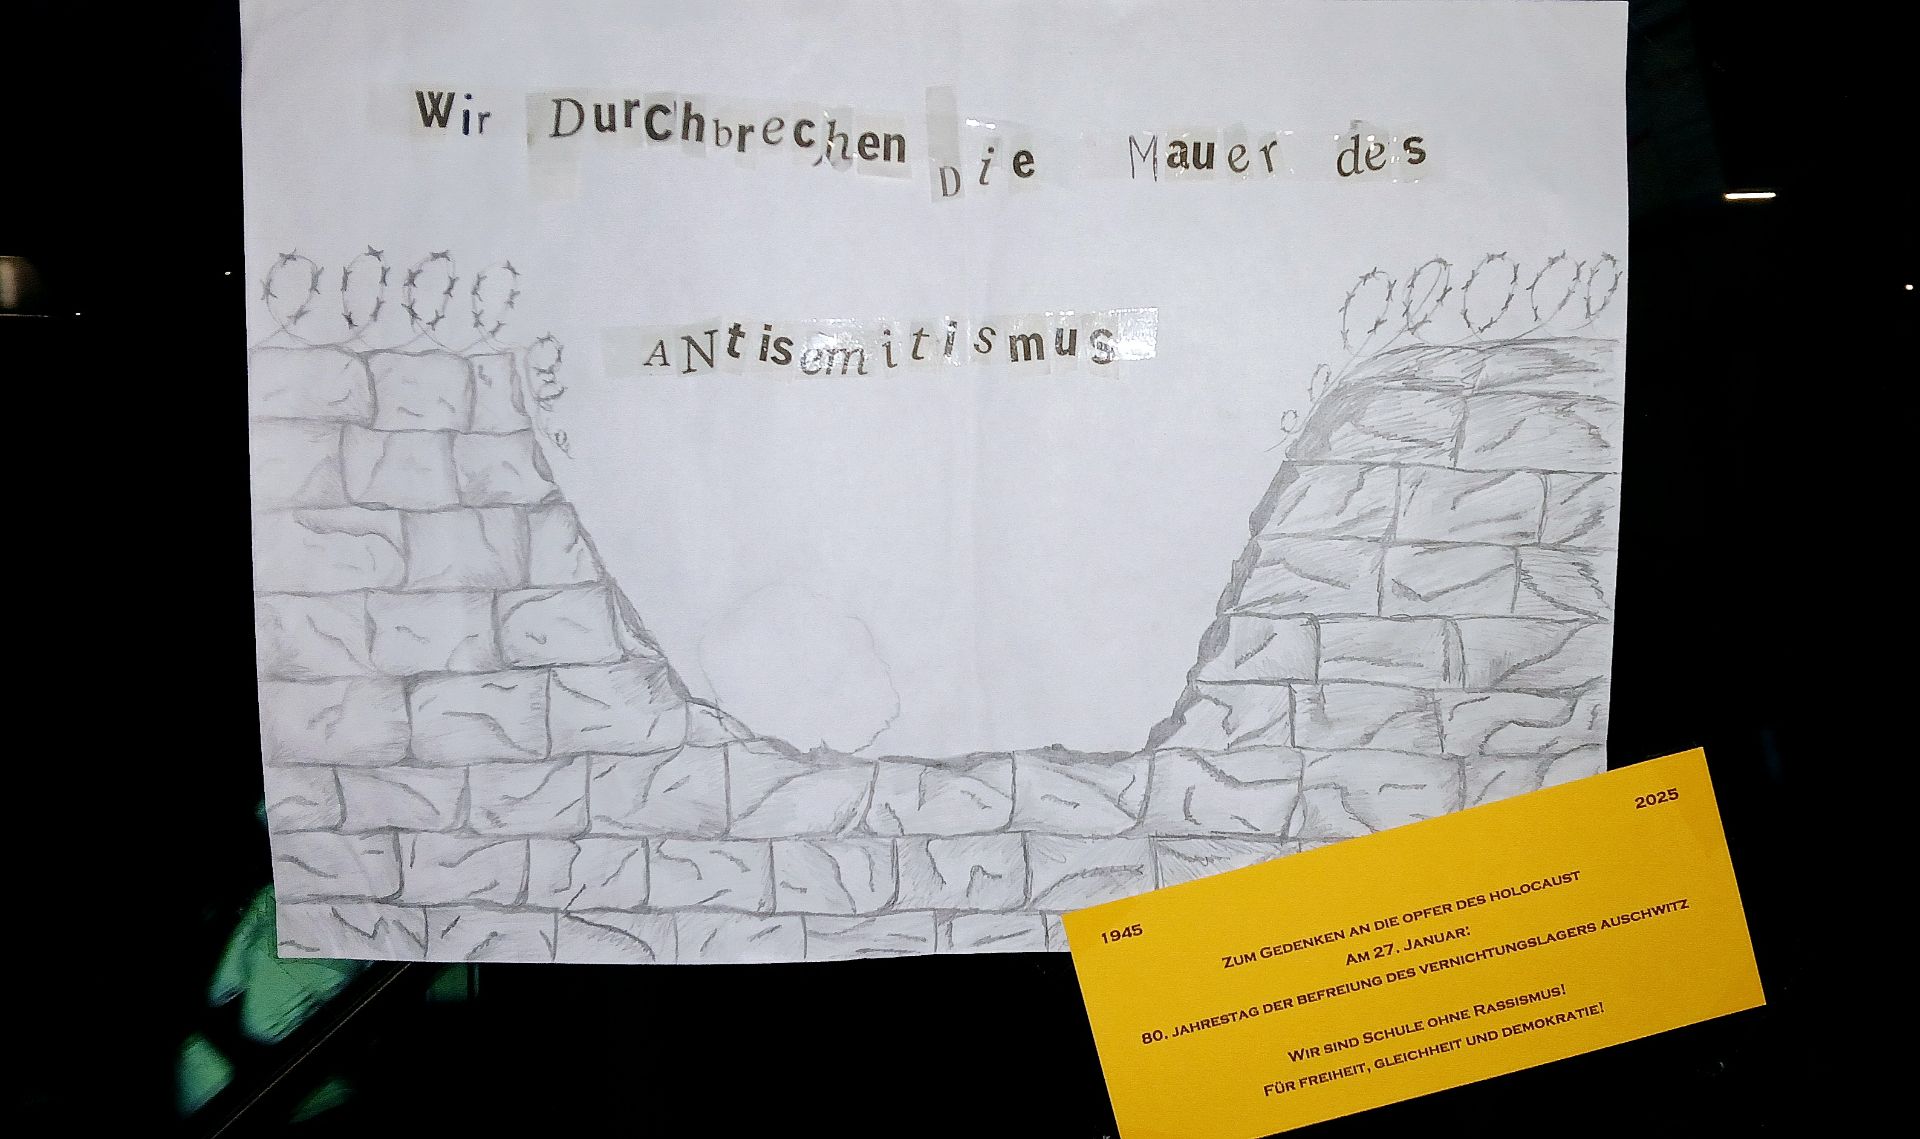 Wir Durchbrechen Die Mauer des
ANtisemitismus
1945
2025
Zum Gedenken an die Opfer des Holocaust
Am 27. Januar:
80. Jahrestag der Befreiung des Vernichtungslagers Auschwitz
Wir sind Schule ohne Rassismus!
Für Freiheit, Gleichheit und Demokratie!